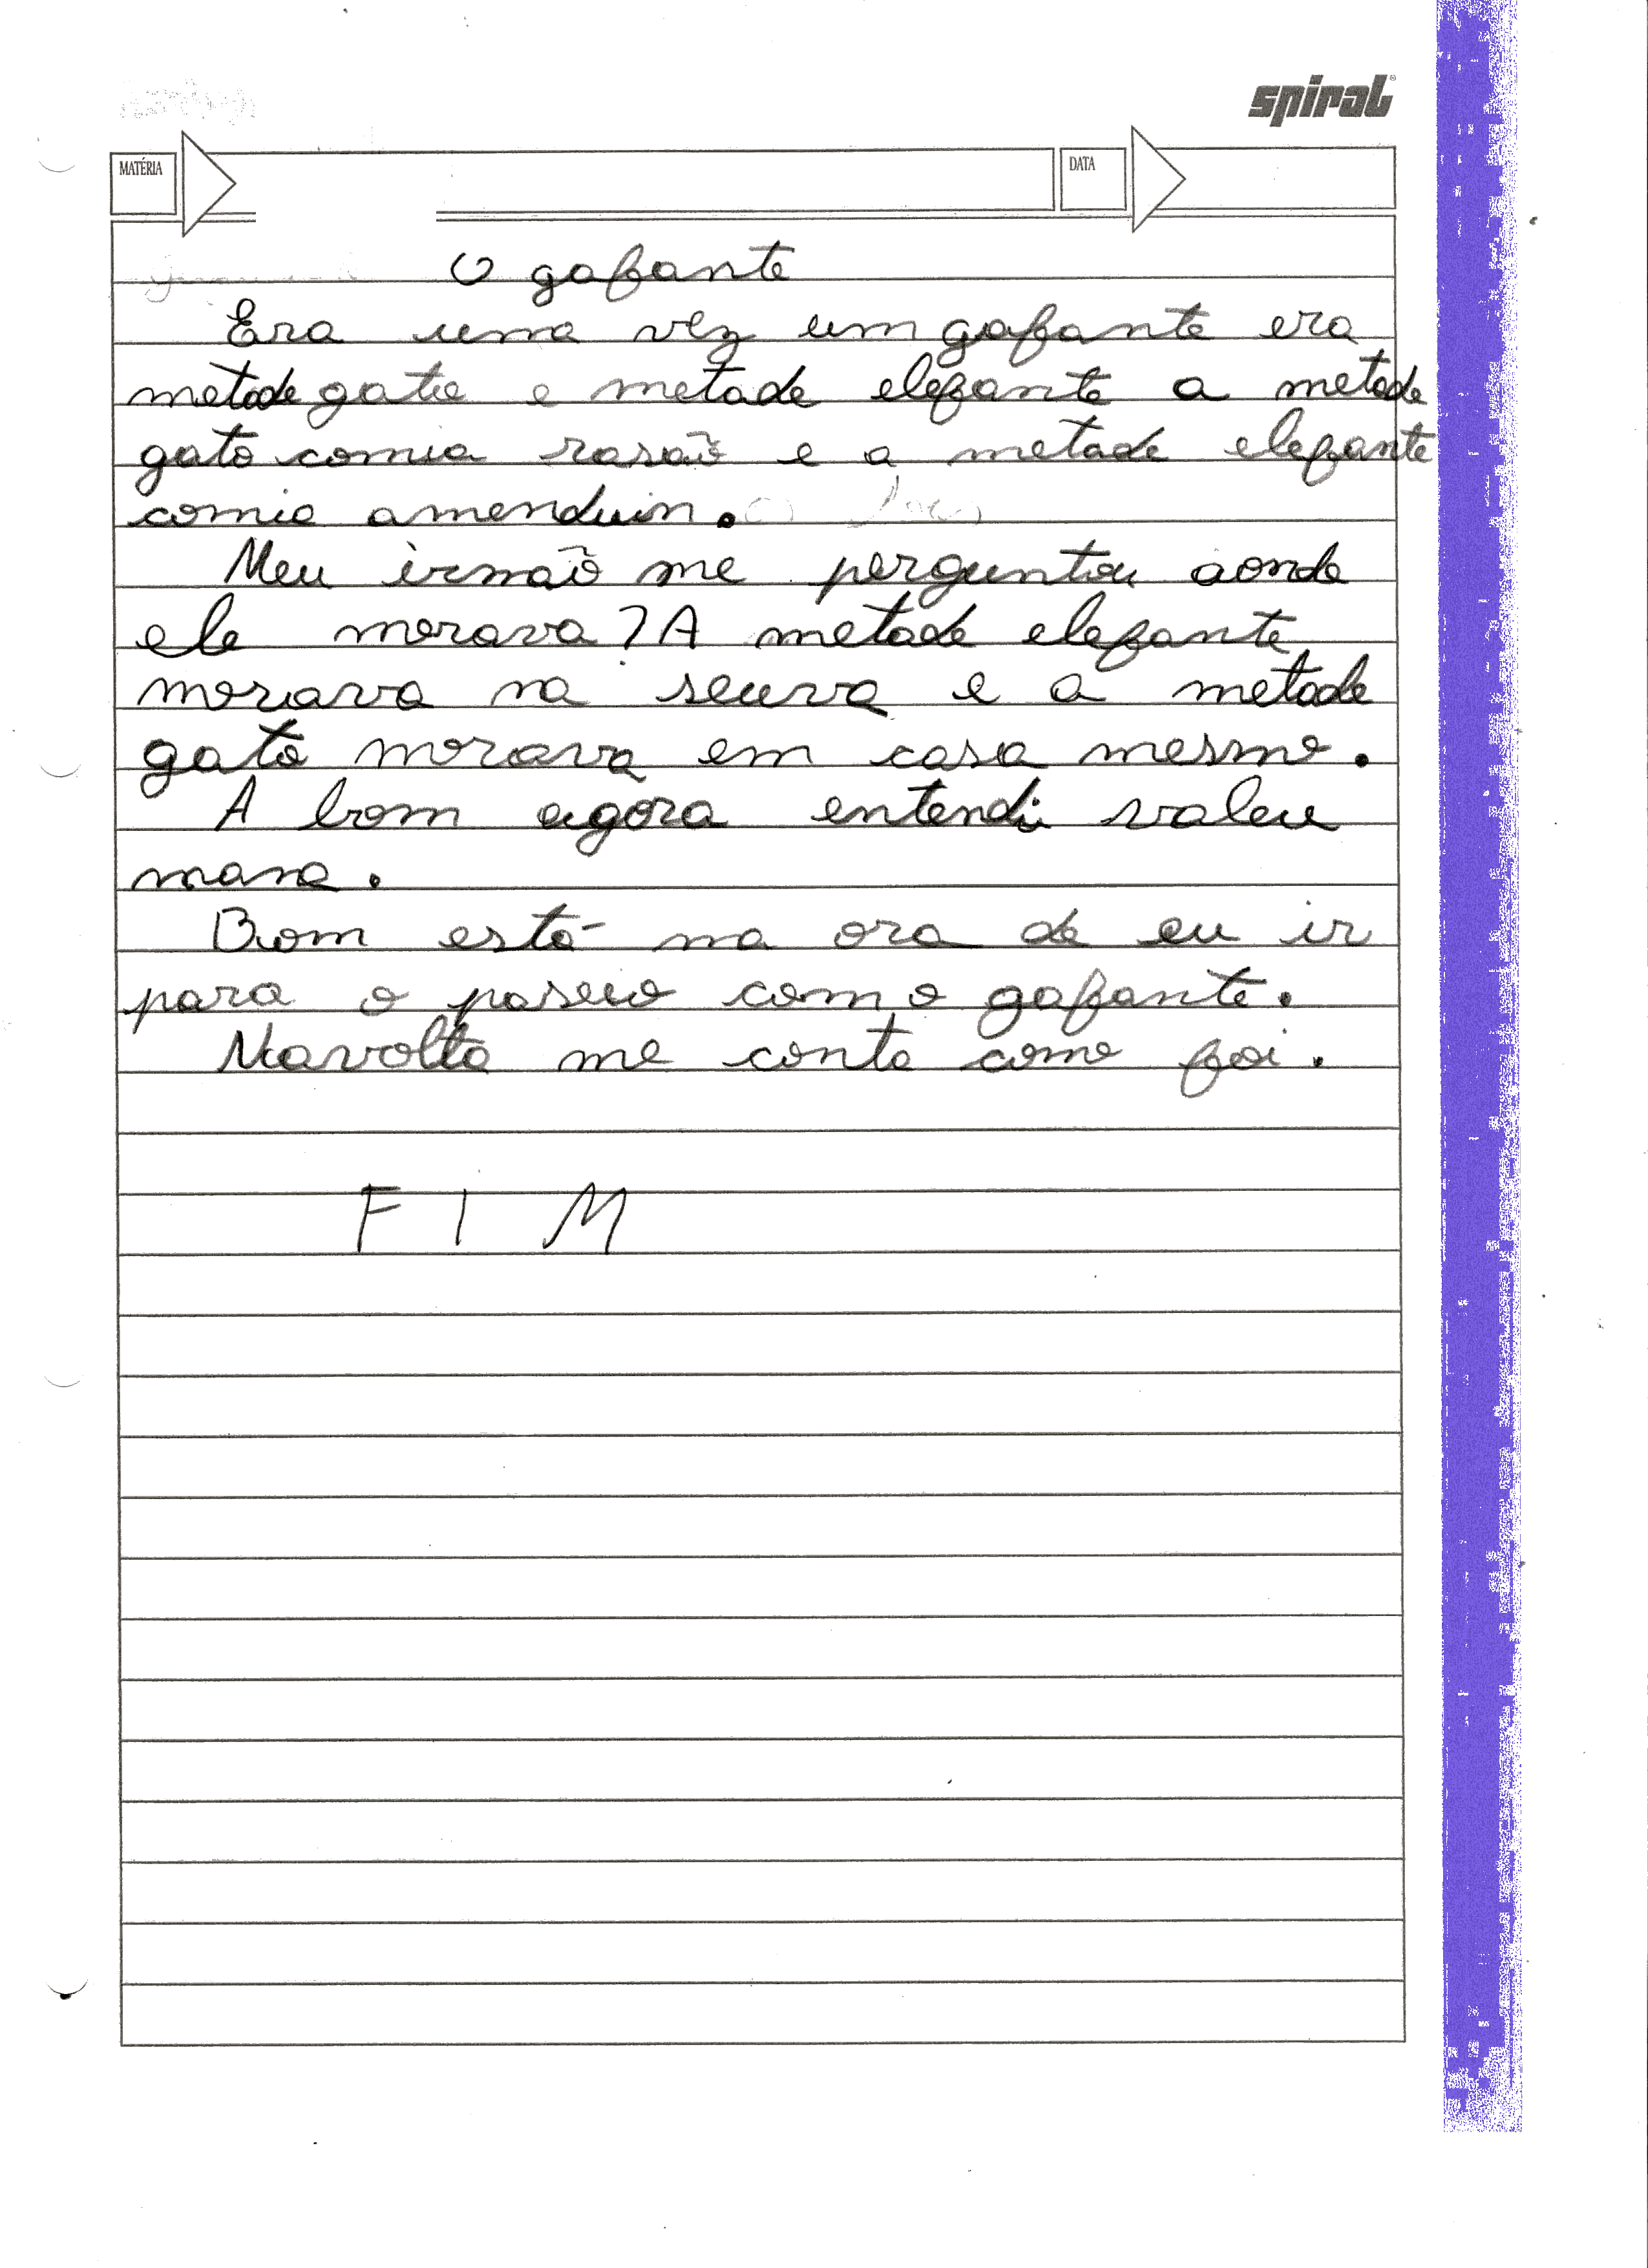 spiral
MATÉRIA
DATA
O gafante
Era uma vez um gafante era
metade gato e metade elefante a metade
gato comia rasão e a metade elefante
comia amenduin.
Meu irmão me perguntou aonde
ele morava? A metade elefante
morava na seuva e a metade
gato morava em casa mesmo.
A bom agora entendi valeu
mana.
Bom está na ora de eu ir
para o paseio com o gafante.
Navolta me conta como foi.
FIM